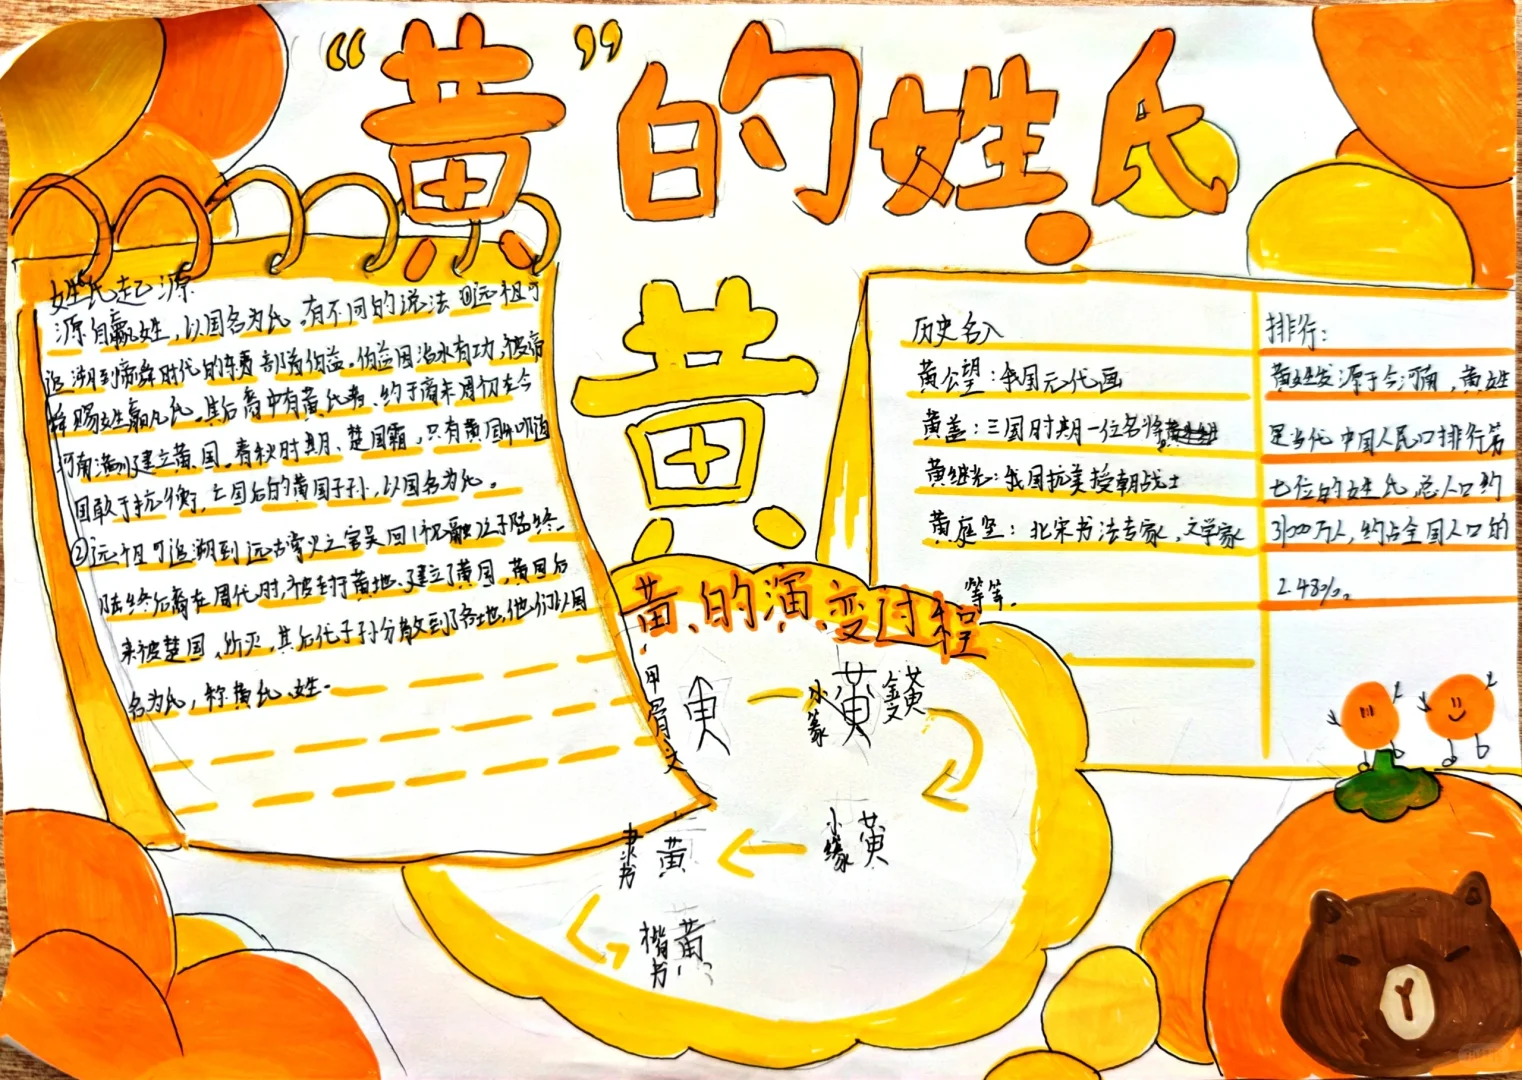 “黄”的姓氏
姓氏起源
源自嬴姓，以国名为氏。有不同的说法①远祖可
追溯到帝舜时代的东夷部落伯益。伯益因治水有功，被帝
舜赐姓嬴氏。其后裔中有黄氏者、约于商末周初在今
河南潢川建立黄国。春秋时期、楚国霸，只有黄国和随
国敢于抗衡，亡国后的黄国子孙，以国名为氏。
②远祖可追溯到远古
陆终后裔在周代时，被封于黄地、建立了黄国，黄国后
来被楚国所灭，其后代子孙分散到了各地，他们以国
名为氏，称黄氏姓。
黄
历史名人
黄公望：我国元代画
黄盖：三国时期一位名将
黄继光：我国抗美援朝战士
黄庭坚：北宋书法专家，文学家
等等。
排行：
黄姓发源于今河南，黄姓
是当代中国人民口排行第
七位的姓氏，总人口约
3100万人，约占全国人口的
2.48%。
黄的演变过程
甲骨文
小篆 黄
小缘 黄
隶书 黄
楷书 黄